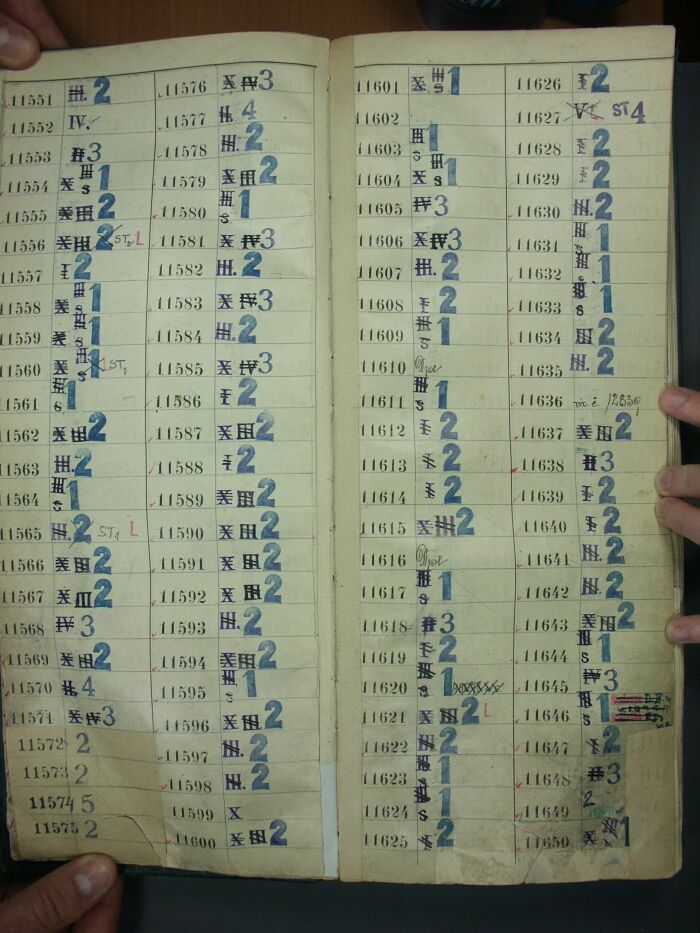 11551 III. 2
11552 IV.
11553 II 3
11554 X III s 1
11555 X III 2
11556 X III 2 ST2 L
11557 I 2
11558 X III s 1
11559 X III s 1
11560 X III s 1 ST1
11561 III s 1
11562 X III 2
11563 III. 2
11564 III s 1
11565 III. 2 ST1 L
11566 X III 2
11567 X III 2
11568 IV 3
11569 X III 2
11570 II. 4
11571 X IV 3
11572 2
11573 2
11574 5
11575 2
11576 X IV 3
11577 II. 4
11578 III. 2
11579 X III 2
11580 III s 1
11581 X IV 3
11582 III. 2
11583 X IV 3
11584 III. 2
11585 X IV 3
11586 I 2
11587 X III 2
11588 I 2
11589 X III 2
11590 X III 2
11591 X III 2
11592 X III 2
11593 III. 2
11594 X III 2
11595 III s 1
11596 X III 2
11597 III. 2
11598 III. 2
11599 X
11600 X III 2
11601 X III s 1
11602
11603 III s 1
11604 X III s 1
11605 IV 3
11606 X IV 3
11607 III. 2
11608 I 2
11609 III s 1
11610
11611 III s 1
11612 I 2
11613 I 2
11614 I 2
11615 X III 2
11616
11617 III s 1
11618 II 3
11619 I 2
11620 III s 1
11621 X III 2 L
11622 III. 2
11623 III s 1
11624 III s 1
11625 I 2
11626 I 2
11627 V L ST 4
11628 I 2
11629 I 2
11630 III. 2
11631 III s 1
11632 III s 1
11633 III s 1
11634 III 2
11635 III. 2
11636 viz č. 12839
11637 X III 2
11638 II 3
11639 I 2
11640 I 2
11641 III. 2
11642 III. 2
11643 X III 2
11644 III s 1
11645 IV 3
11646 III s 1
11647 I 2
11648 II 3
11649 2
11650 X III 1